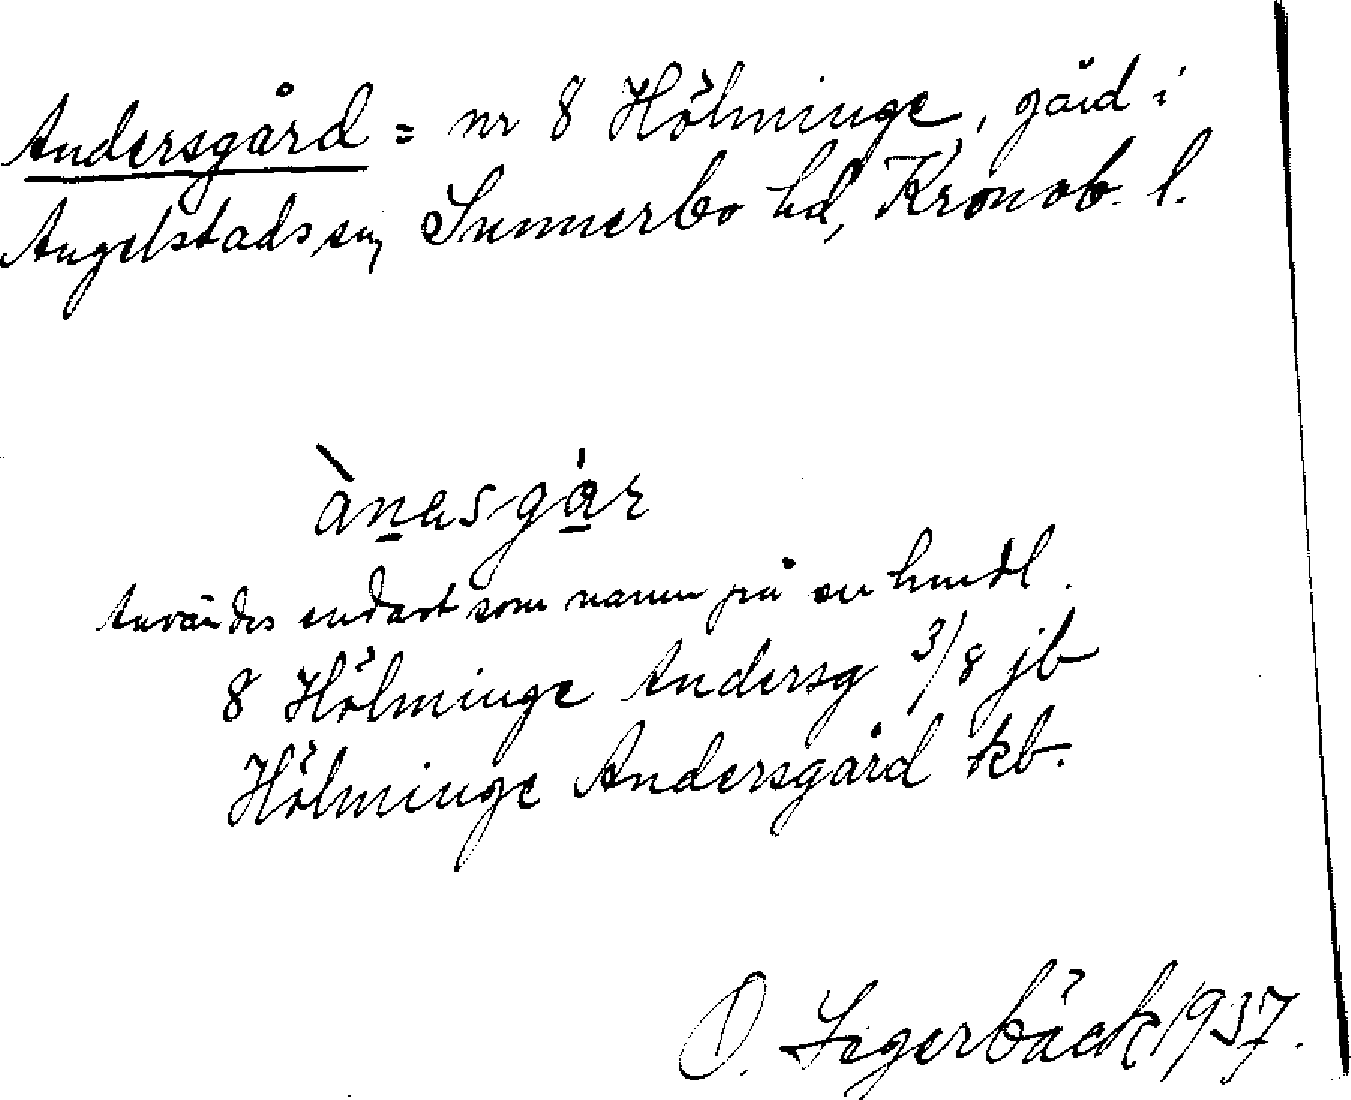 Andersgård = nr 8 Hölminge, gård i
Angelstads sn, Sunnerbo hd, Kronob. l.
ànasgár
Användes endast som namn på en hmdl.
8 Hölminge Andersg 3/8 jb
Hölminge Andersgård kb.
O. Segerbäck 1937.